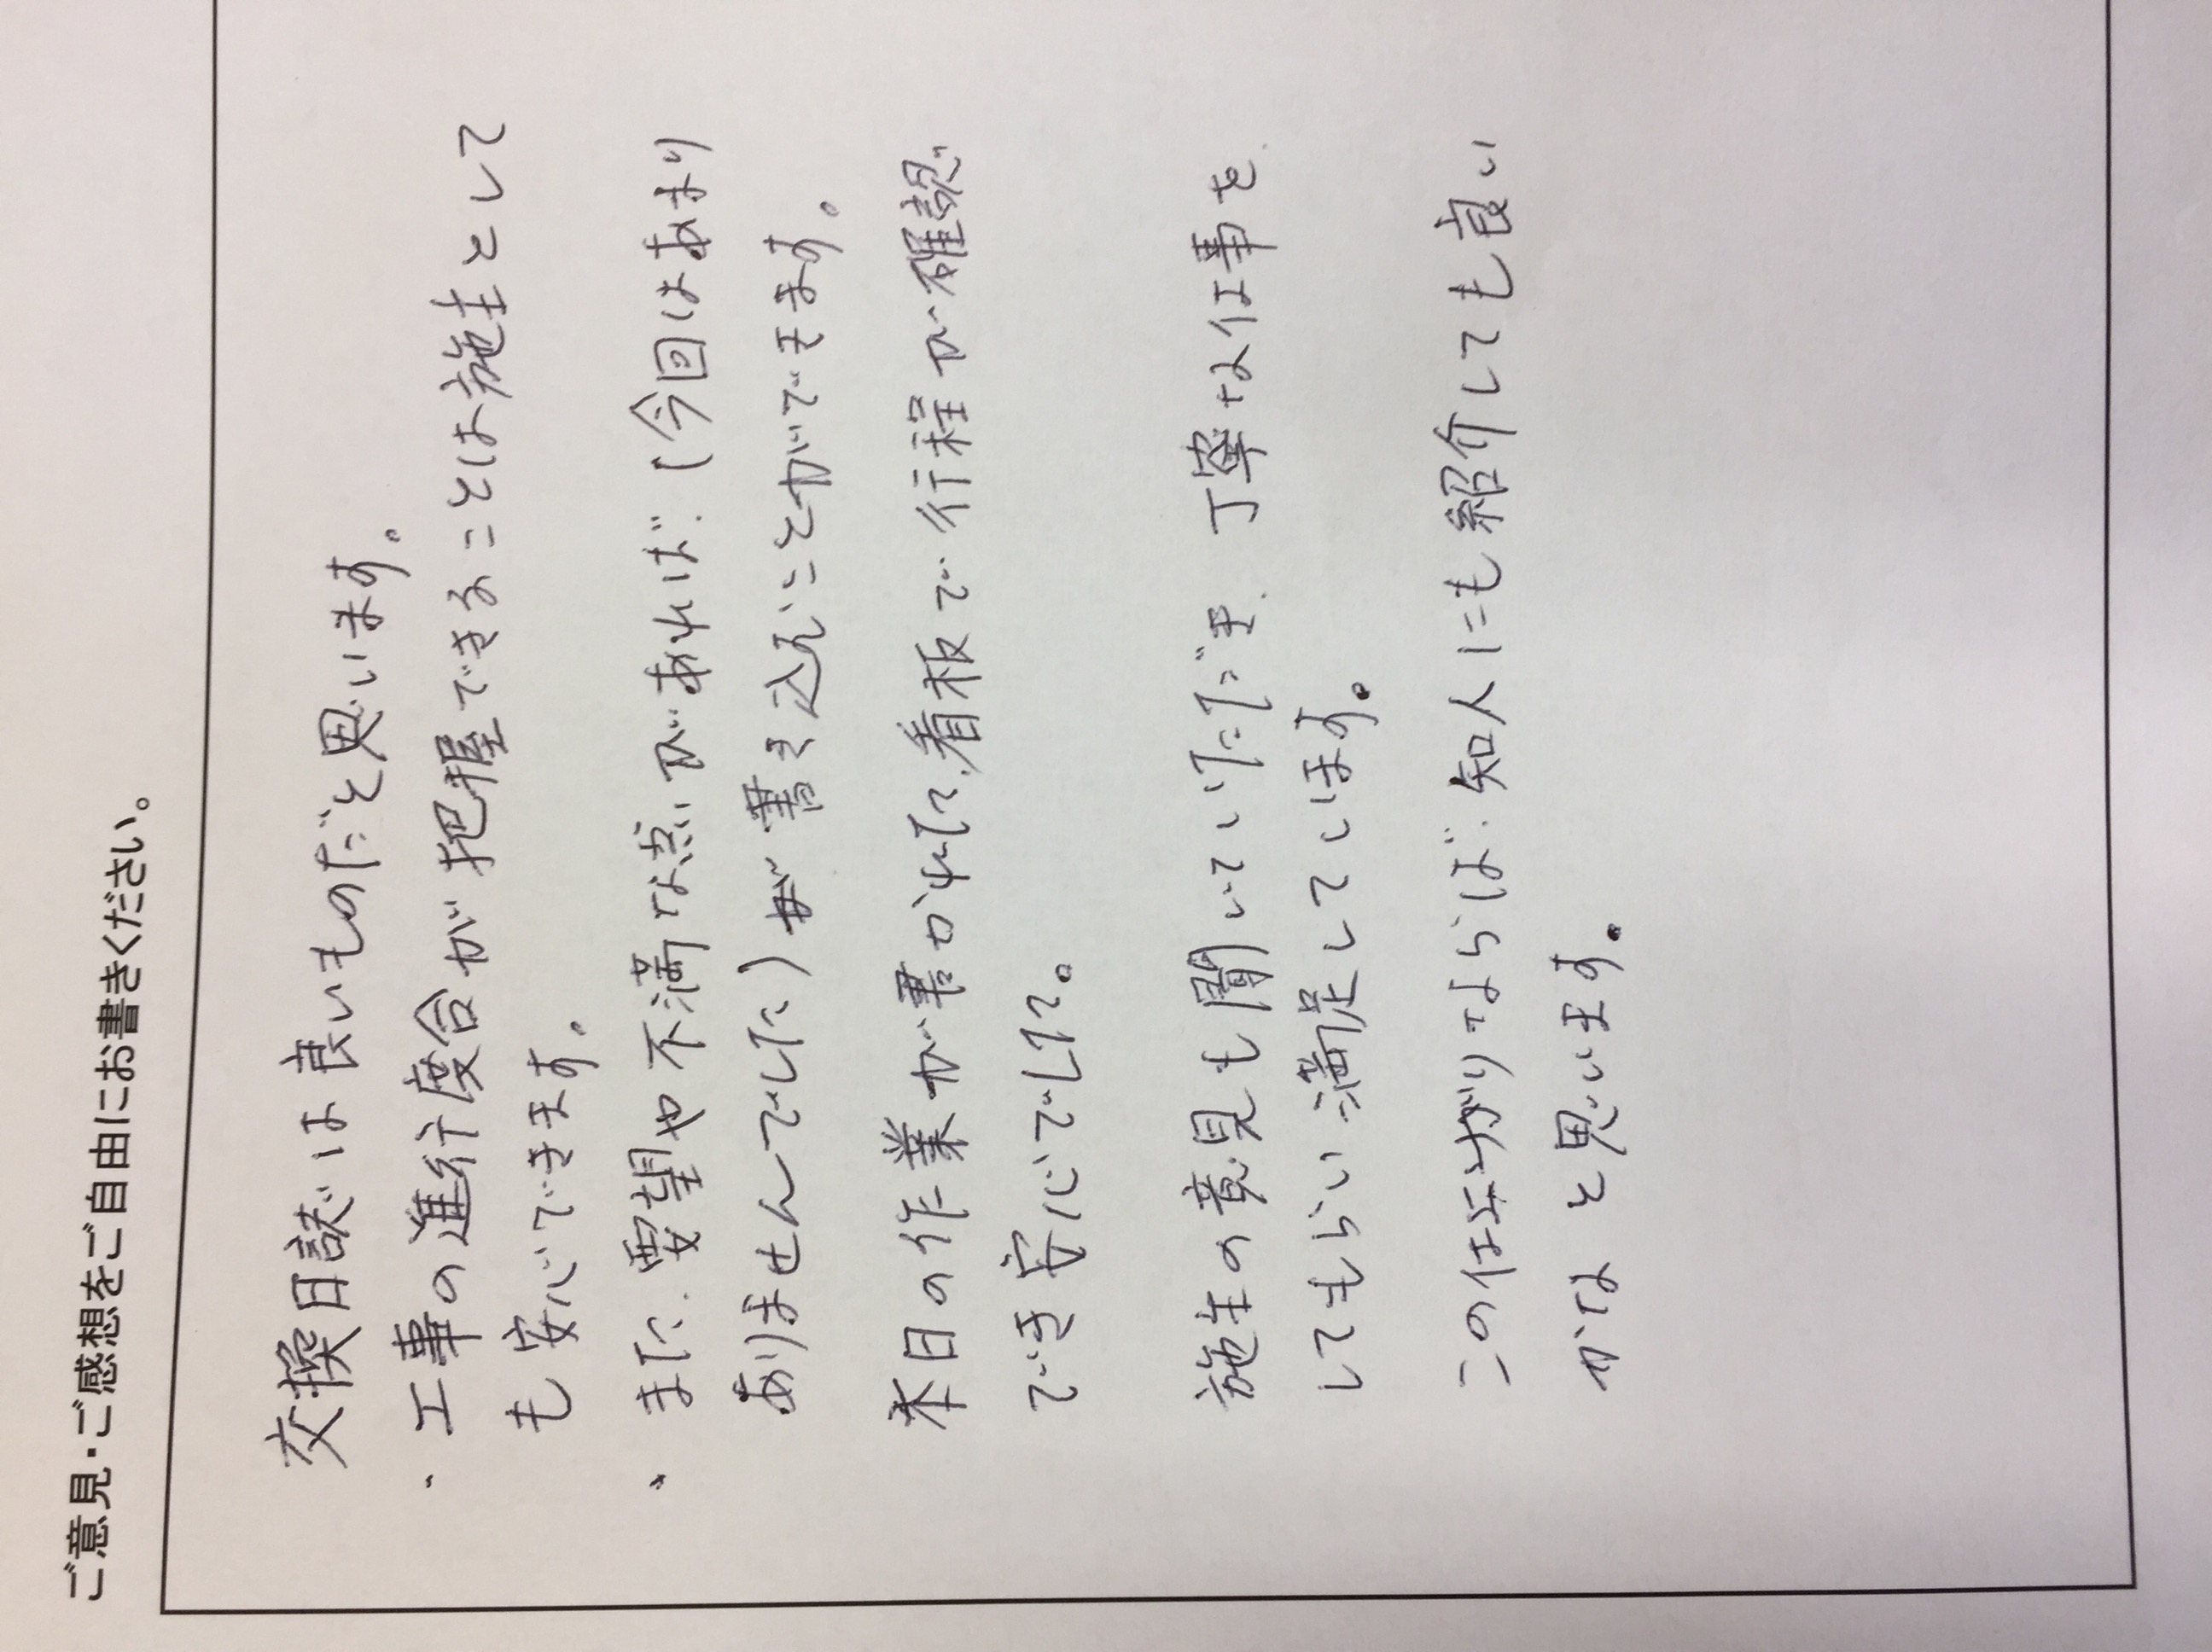 ご意見・ご感想をご自由にお書きください。
交換日誌は良いものだと思います。
・工事の進行度合が把握できることは施主として
も安心できます。
・また、要望や不満な点があれば、(今回はあまり
ありませんでした)が書き込むことができます。
本日の作業が書かれた、看板で行程が確認
でき安心でした。
施主の意見も聞いていただき、丁寧な仕事を
してもらい満足しています。
この仕上がりならば、知人にも紹介しても良い
かなと思います。